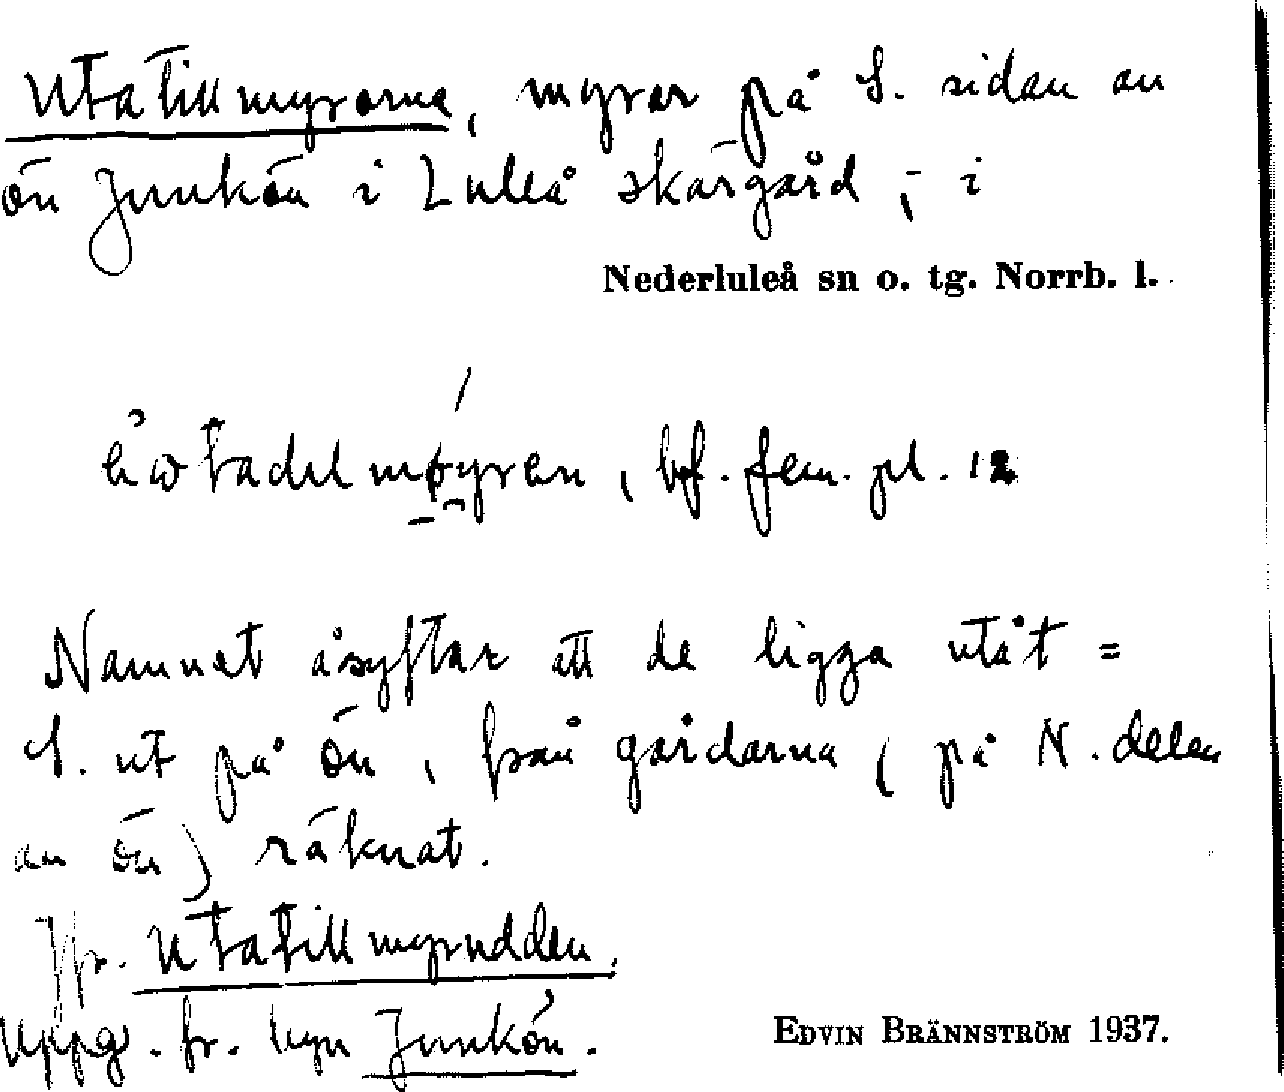 Utatillmyrarna, myrar på S. sidan av
ön Junkön i Luleå skärgård, - i
Nederluleå sn o. tg. Norrb. l.
bf. fem. pl. 12
Namnet åsyftar att de ligga utåt =
S. ut på ön, från gårdarna (på N. delen
av ön) räknat.
Jfr. Utatillmyrudden.
Uppg. fr. byn Junkön.
EDVIN BRÄNNSTRÖM 1937.